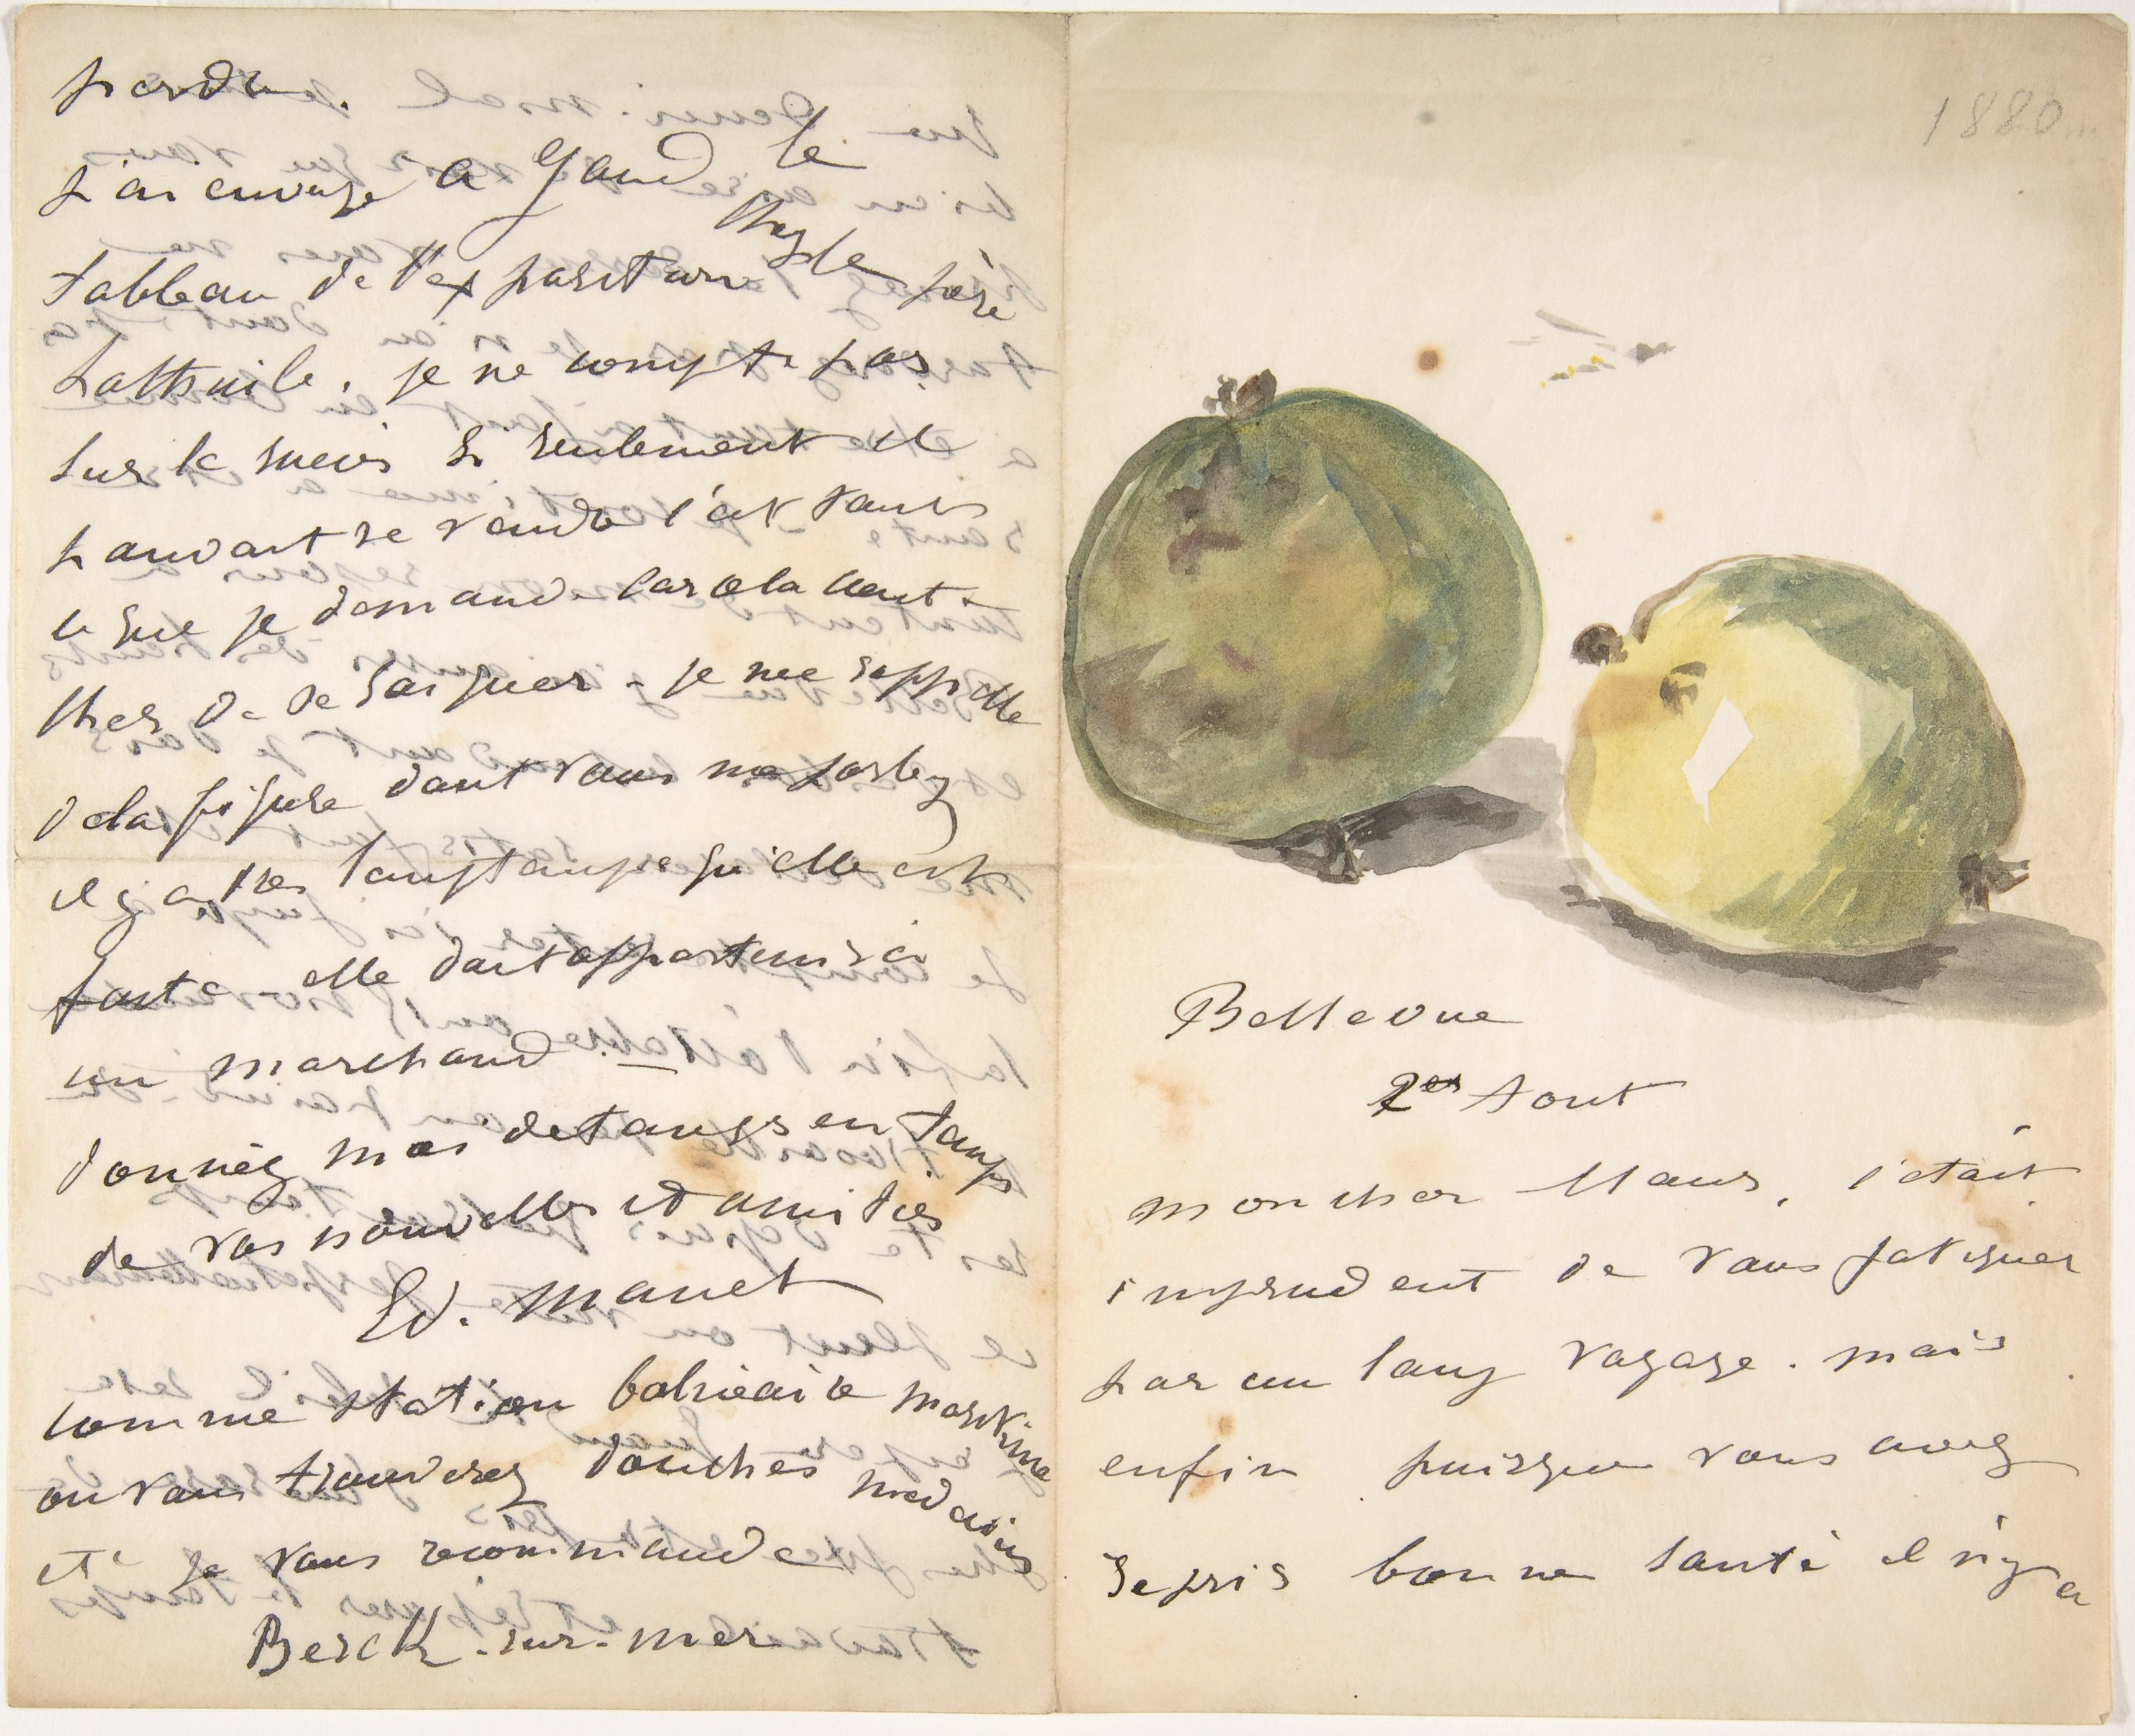 1880
Bellevue
1er Aout
mon cher Maus, c'était
imprudent de vous fatiguer
par un long voyage. mais
enfin puisque vous avez
repris bonne santé il n'y a
perdre.
j'ai envoyé a Gand le
tableau de l'exposition chez le père
Lathuile. je ne compte pas
sur le succès si seulement il
pouvait se vendre c'est tout
ce que je demande car cela
cher de se soigner - je me rappelle
de la figure dont vous me parlez
il y a très longtemps qu'elle est
faite elle doit appartenir a
un marchand. —
donnez moi de temps en temps
de vos nouvelles et amitiés
Ed. Manet
comme station balnéaire maritime
ou vous trouverez douches médecins
etc je vous recommande
Berck-sur-mer